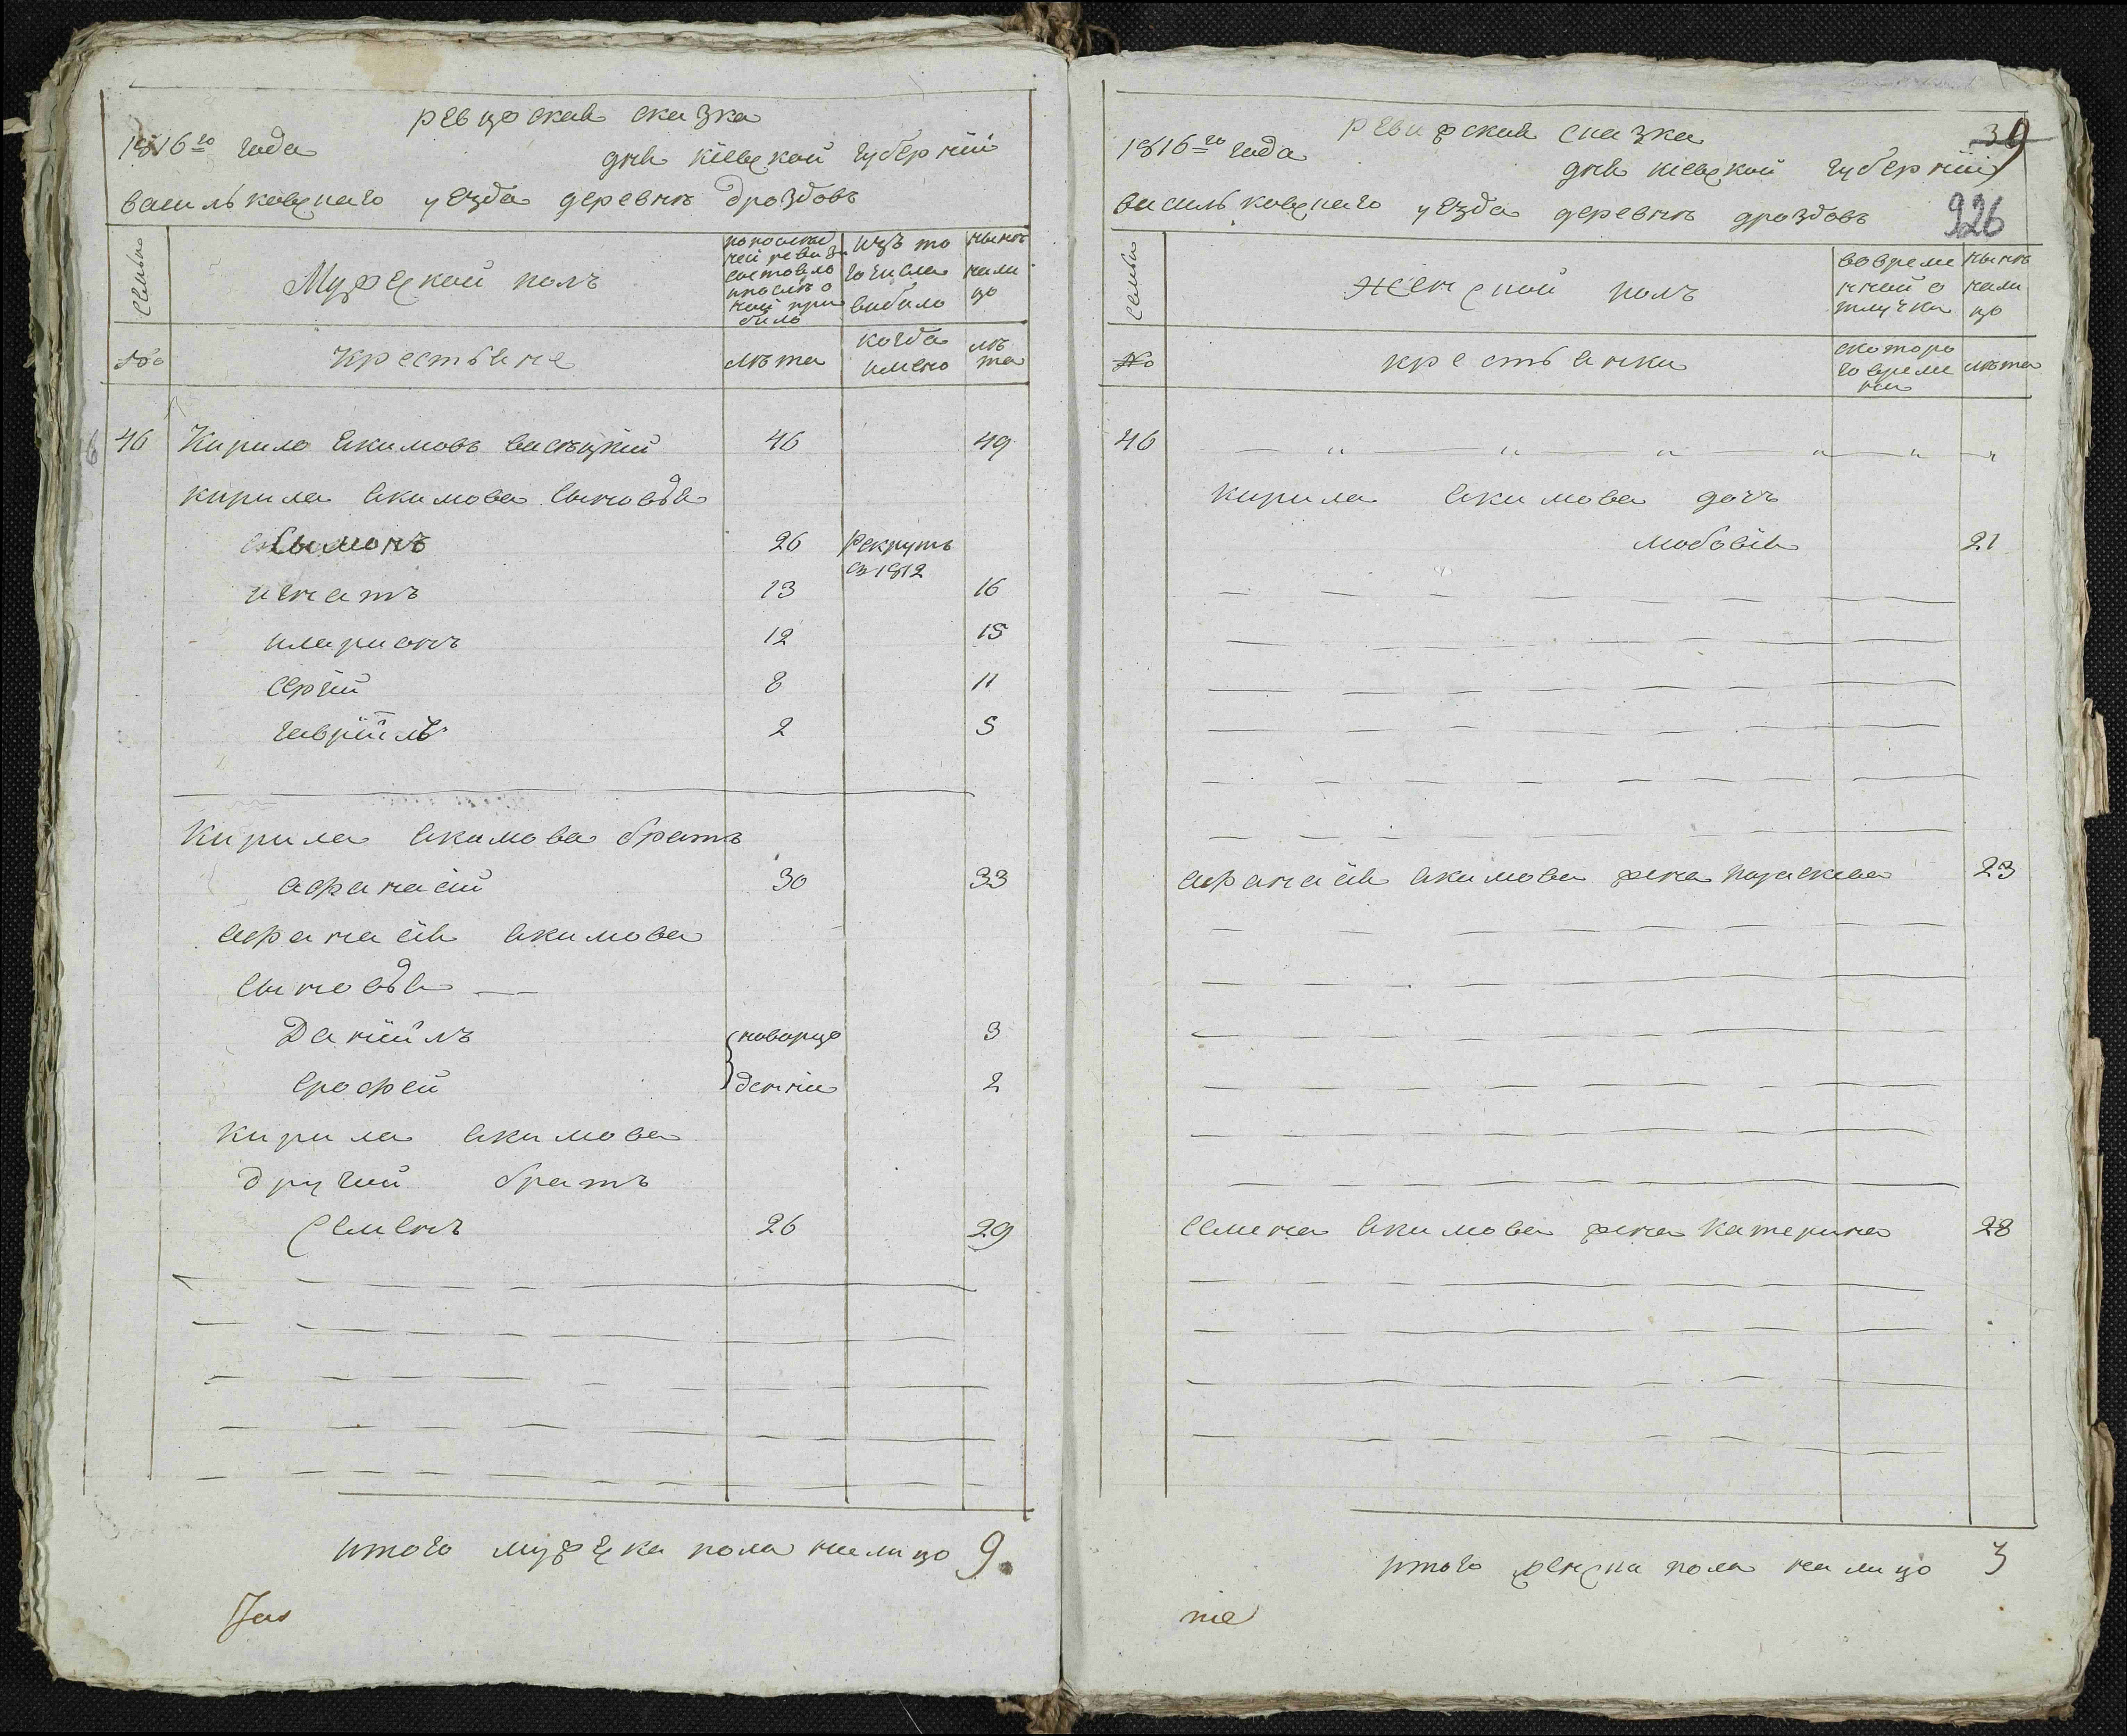 ревизская сказка
1816го года
дня кіевской губерніи
васильковскаго уезда деревнѣ дроздовъ
семьи
Мужеской полъ
по послѣд
ней ревизи
состояло
и послѣ о
ной при
било
изъ то
го числа
вибило
нынѣ
нали
цо
№
крестьяне
лѣта
когда
имено
лѣ
та
46 Кирило Якимовъ 46 49
кирила якимова сыновья
Сымонъ 26 рекрутъ
въ 1812
игнатъ 13 16
иларионъ 12 15
сергій 8 11
гавріилъ 2 5
Кирила якимова братъ
афанасій 30 33
афанасія якимова
сыновья
Даніилъ новорж 3
ерофей денни 2
кирила якимова
другий братъ
Семенъ 26 29
итого мужеска пола налицо 9
ревизская сказка
39
1816го года
дня кіевской губерніи
васильковскаго уезда деревнѣ дроздовъ
926
семьи
Женской полъ
во време
нной о
тлучки
нынѣ
нали
цо
№
крестьянки
скоторо
го време
ни
лѣта
46
кирила якимова дочъ
любовія 21
афанасія якимова жена параскева 23
семена якимова жена катерина 28
итого женска пола налицо 3
nie